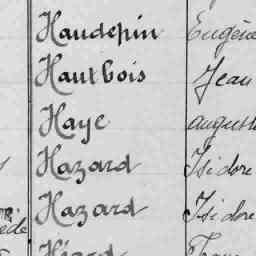 Haudepin Eugène
Hautbois Jean
Haye auguste
Hazard Isidore
Hazard Isidore